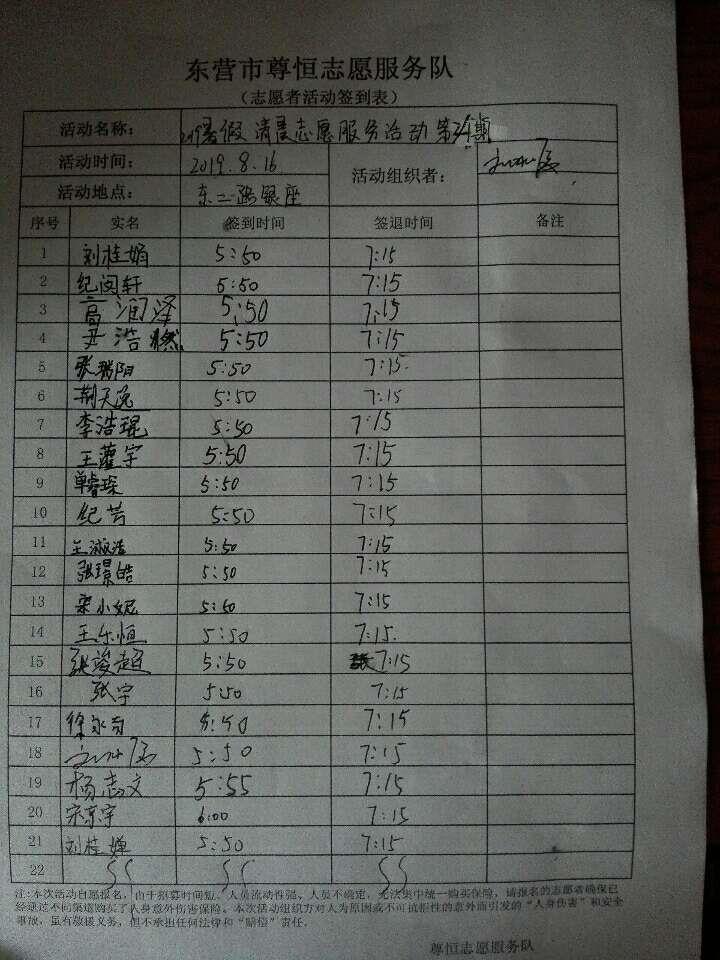 东营市尊恒志愿服务队
（志愿者活动签到表）
活动名称： 2019暑假清晨志愿服务活动第 期
活动时间： 2019.8.16 活动组织者：
活动地点： 东二路银座
序号 实名 签到时间 签退时间 备注
1 刘桂娟 5:50 7:15
2 纪闵轩 5:50 7:15
3 高润泽 5:50 7:15
4 尹浩燃 5:50 7:15
5 张瑞阳 5:50 7:15.
6 荆天逸 5:50 7:15
7 李浩琨 5:50 7:15
8 王藿宇 5:50 7:15
9 单睿琛 5:50 7:15
10 纪芸 5:50 7:15
11 王淑洁 5:50 7:15
12 张璟皓 5:50 7:15
13 栾小妮 5:50 7:15
14 王乐恒 5:50 7:15.
15 张峻超 5:50 7:15
16 张宇 5:50 7:15
17 徐永 5:50 7:15
18 5:50 7:15
19 杨志文 5:55 7:15
20 宋东宇 6:00 7:15
21 刘桂婵 5:50 7:15
22
注:本次活动自愿报名，由于招募时间短、人员流动性强、人员不确定，无法集中统一购买保险，请报名的志愿者确保已
经通过不同渠道购买了人身意外伤害保险。本次活动组织方对人为原因或不可抗拒性的意外而引发的“人身伤害”和安全
事故，虽有救援义务，但不承担任何法律和“赔偿”责任。
尊恒志愿服务队